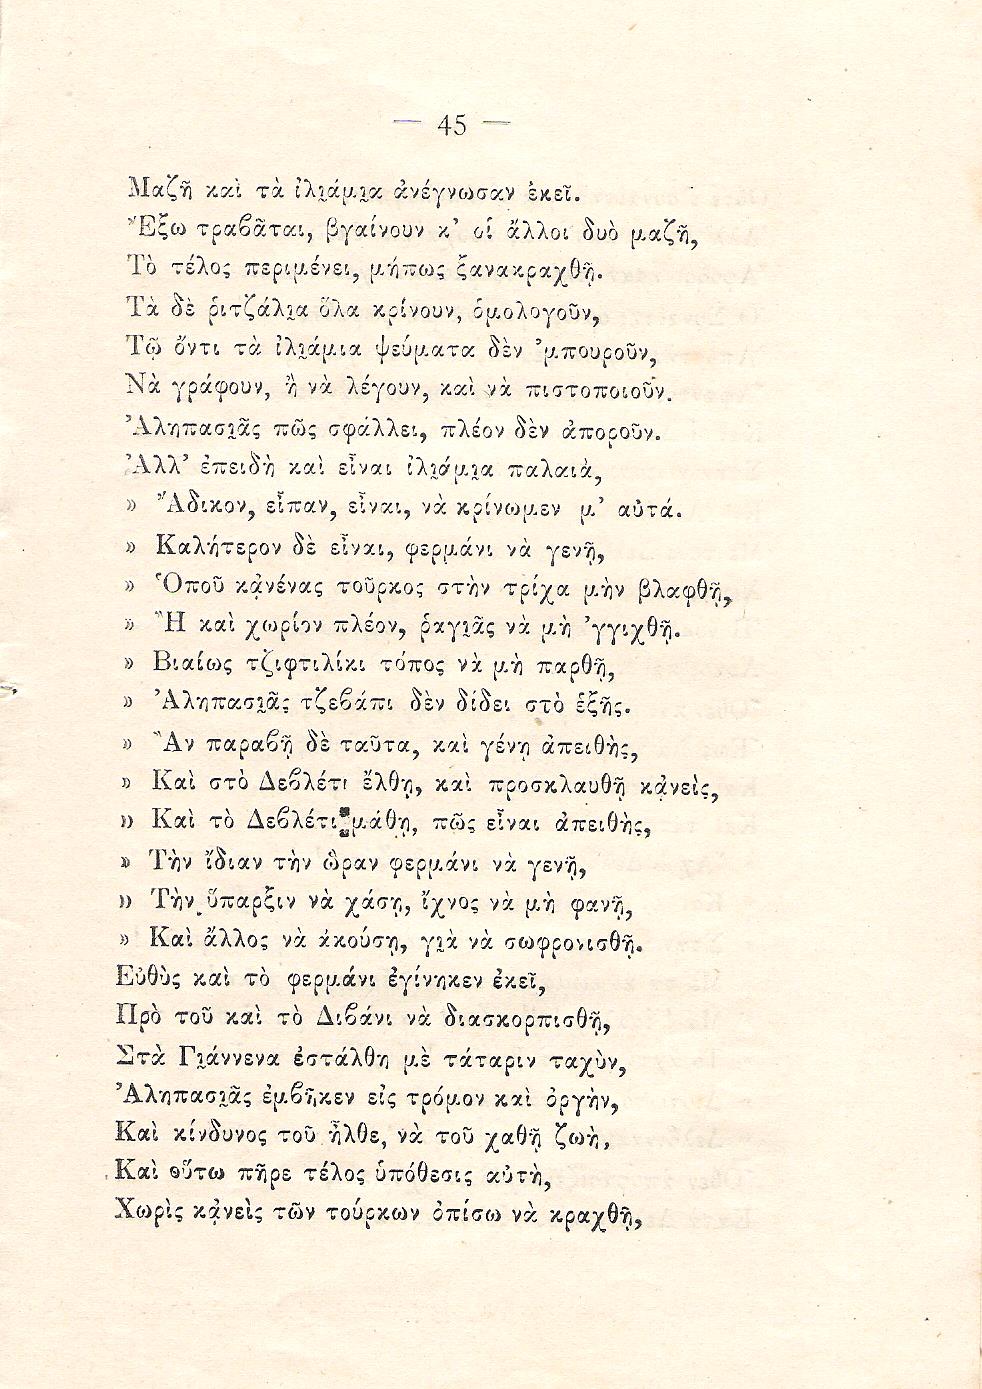 — 45 —
Μαζῆ καὶ τὰ ἰλι̯άμι̯α ἀνέγνωσαν ἐκεῖ.
Ἔξω τραβᾶται, βγαίνουν κ’ οἱ ἄλλοι δυὸ μαζῆ,
Τὸ τέλος περιμένει, μήπως ξανακραχθῇ.
Τὰ δὲ ῥιτζάλι̯α ὅλα κρίνουν, ὁμολογοῦν,
Τῷ ὄντι τὰ ἰλι̯άμια ψεύματα δὲν ’μπουροῦν,
Νὰ γράφουν, ἢ νὰ λέγουν, καὶ νὰ πιστοποιοῦν.
Ἀληπασι̯ᾶς πῶς σφάλλει, πλέον δὲν ἀποροῦν.
Ἀλλ’ ἐπειδὴ καὶ εἶναι ἰλι̯άμι̯α παλαιὰ,
» Ἄδικον, εἶπαν, εἶναι, νὰ κρίνωμεν μ’ αὐτά.
» Καλήτερον δὲ εἶναι, φερμάνι νὰ γενῇ,
» Ὁποῦ κᾀνένας τοῦρκος στὴν τρίχα μὴν βλαφθῇ,
» Ἢ καὶ χωρίον πλέον, ῥαγι̯ᾶς νὰ μὴ ’γγιχθῇ.
» Βιαίως τζιφτιλίκι τόπος νὰ μὴ παρθῇ,
» Ἀληπασι̯ᾶς τζεβάπι δὲν δίδει στὸ ἑξῆς.
» Ἂν παραβῇ δὲ ταῦτα, καὶ γένῃ ἀπειθὴς,
» Καὶ στὸ Δεβλέτι ἔλθῃ, καὶ προσκλαυθῇ κᾀνεὶς,
» Καὶ τὸ Δεβλέτι μάθῃ, πῶς εἶναι ἀπειθὴς,
» Τὴν ἴδιαν τὴν ὥραν φερμάνι νὰ γενῇ,
» Τὴν ὕπαρξιν νὰ χάσῃ, ἴχνος νὰ μὴ φανῇ,
» Καὶ ἄλλος νὰ ἀκούσῃ, γι̯ὰ νὰ σωφρονισθῇ.
Εὐθὺς καὶ τὸ φερμάνι ἐγίνηκεν ἐκεῖ,
Πρὸ τοῦ καὶ τὸ Διβάνι νὰ διασκορπισθῇ,
Στὰ Γι̯άννενα ἐστάλθη μὲ τάταριν ταχὺν,
Ἀληπασι̯ᾶς ἐμβῆκεν εἰς τρόμον καὶ ὀργὴν,
Καὶ κίνδυνος τοῦ ἦλθε, νὰ τοῦ χαθῇ ζωὴ,
Καὶ οὕτω πῆρε τέλος ὑπόθεσις αὐτὴ,
Χωρὶς κᾀνεὶς τῶν τούρκων ὀπίσω νὰ κραχθῇ,